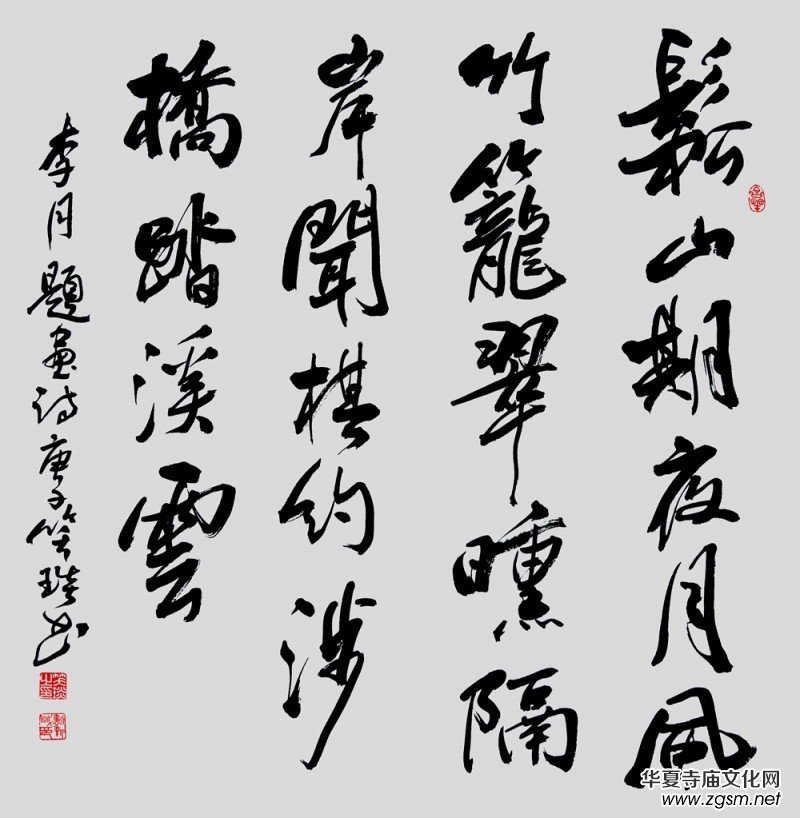 鬆山期夜月風
竹籠翠曛隔
岸聞棋約涉
橋踏溪雲
李月題畫诗庚子笑琰书
华夏寺庙文化网
www.zgsm.net